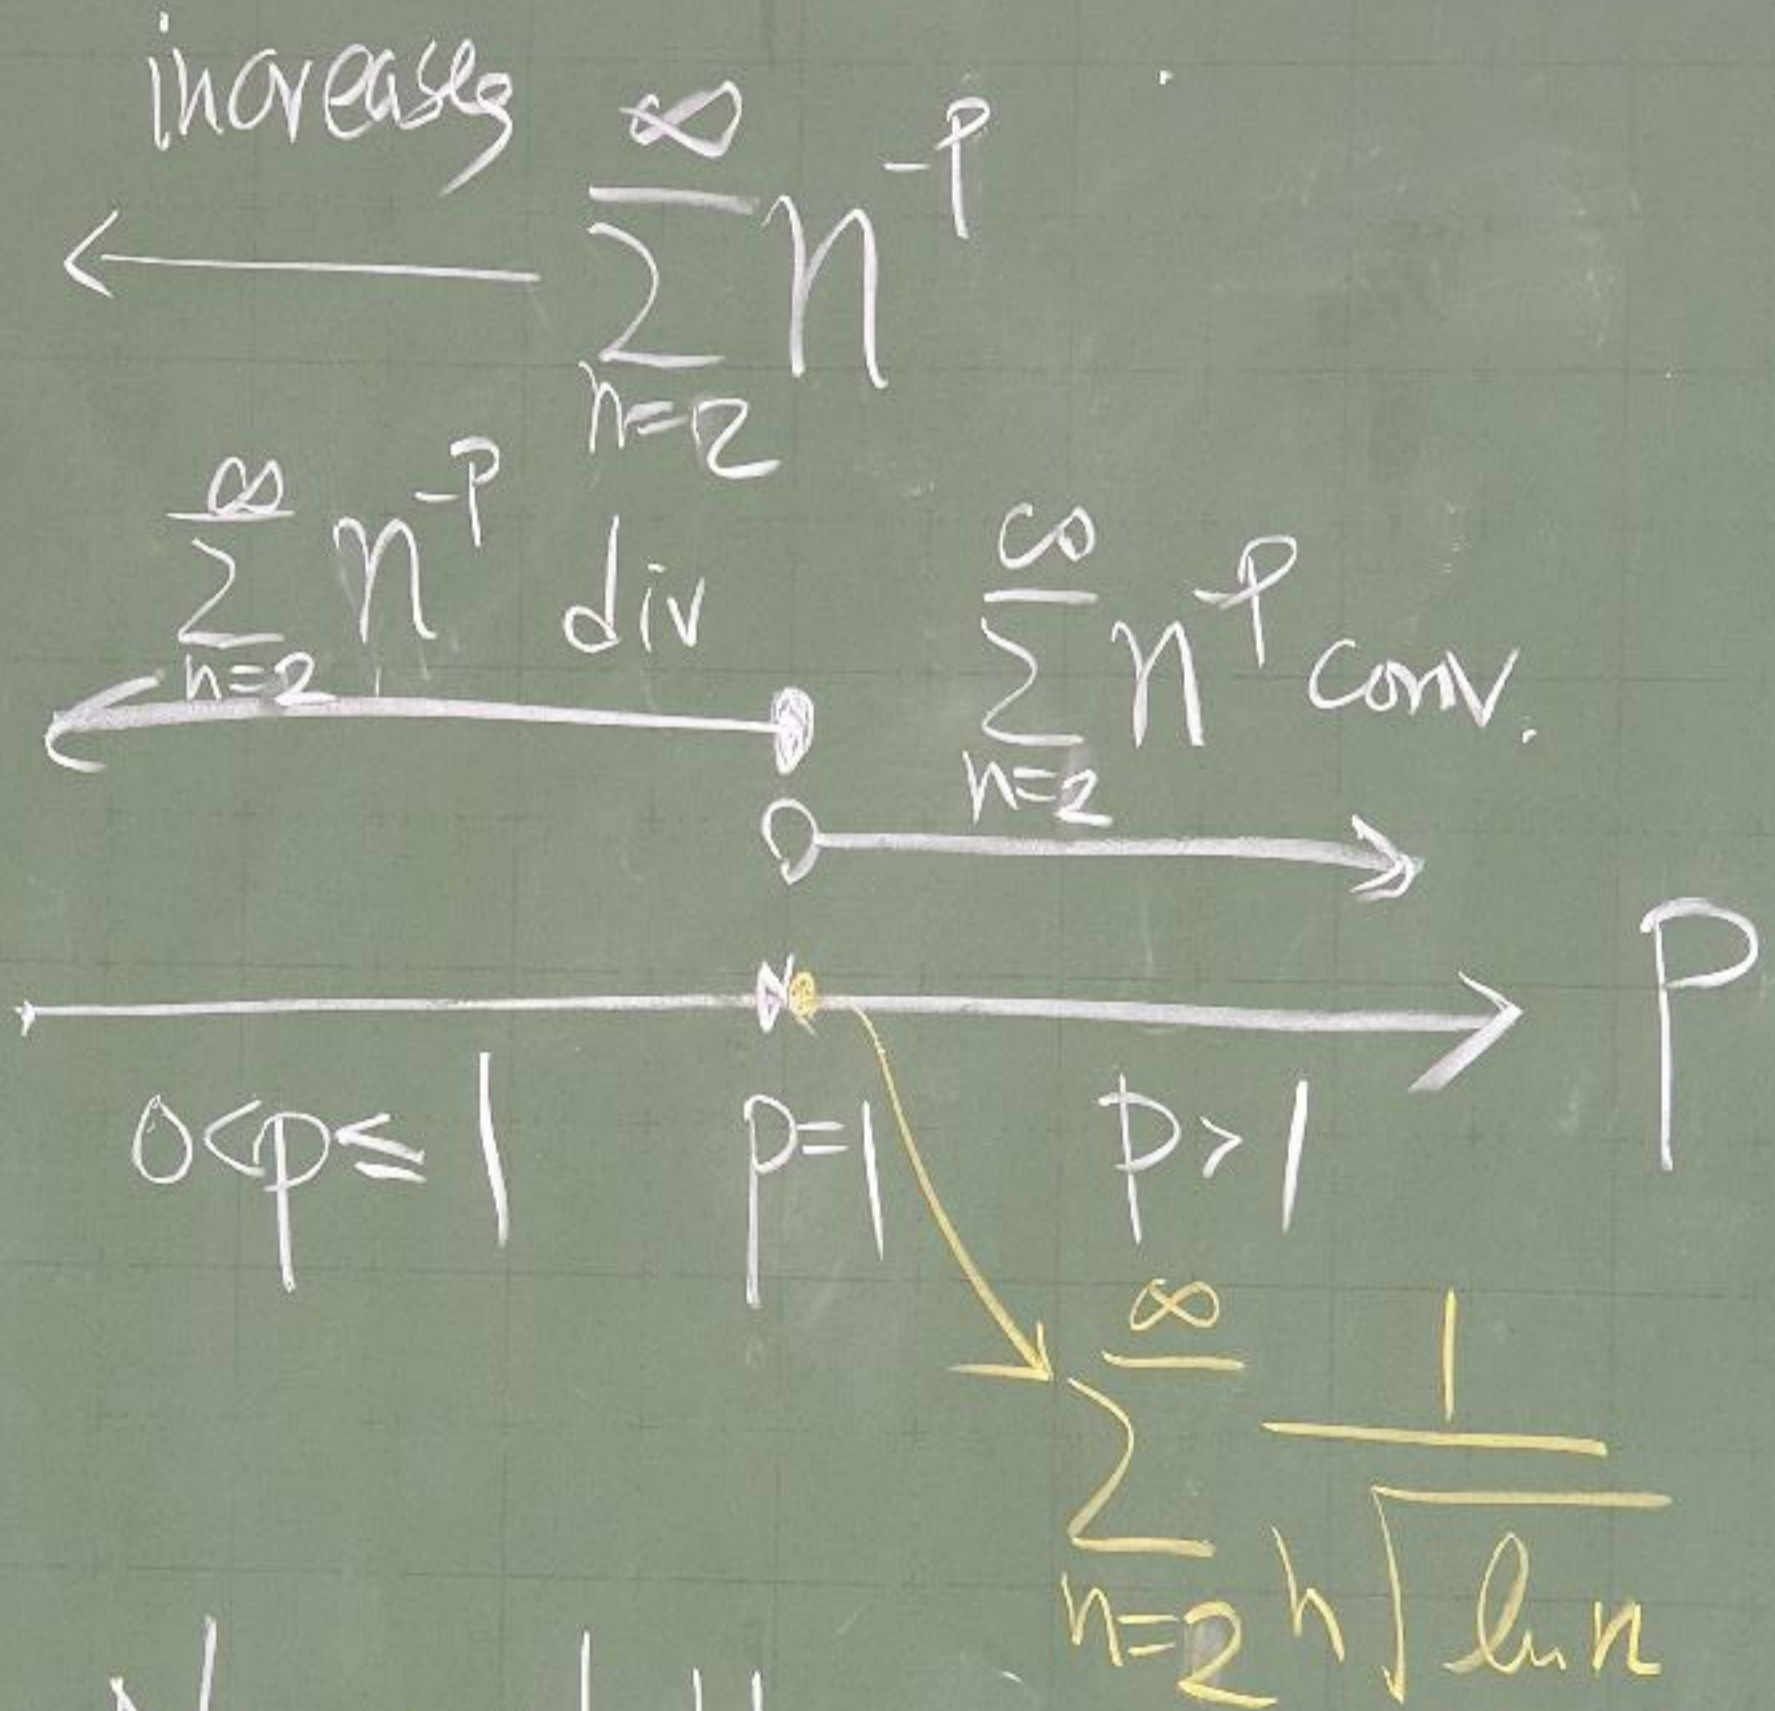 increases
\sum_{n=2}^{\infty} n^{-p}
\sum_{n=2}^{\infty} n^{-p} div
\sum_{n=2}^{\infty} n^{-p} conv.
P
0<p≤1 p=1 p>1
\sum_{n=2}^{\infty} \frac{1}{n\sqrt{\ln n}}